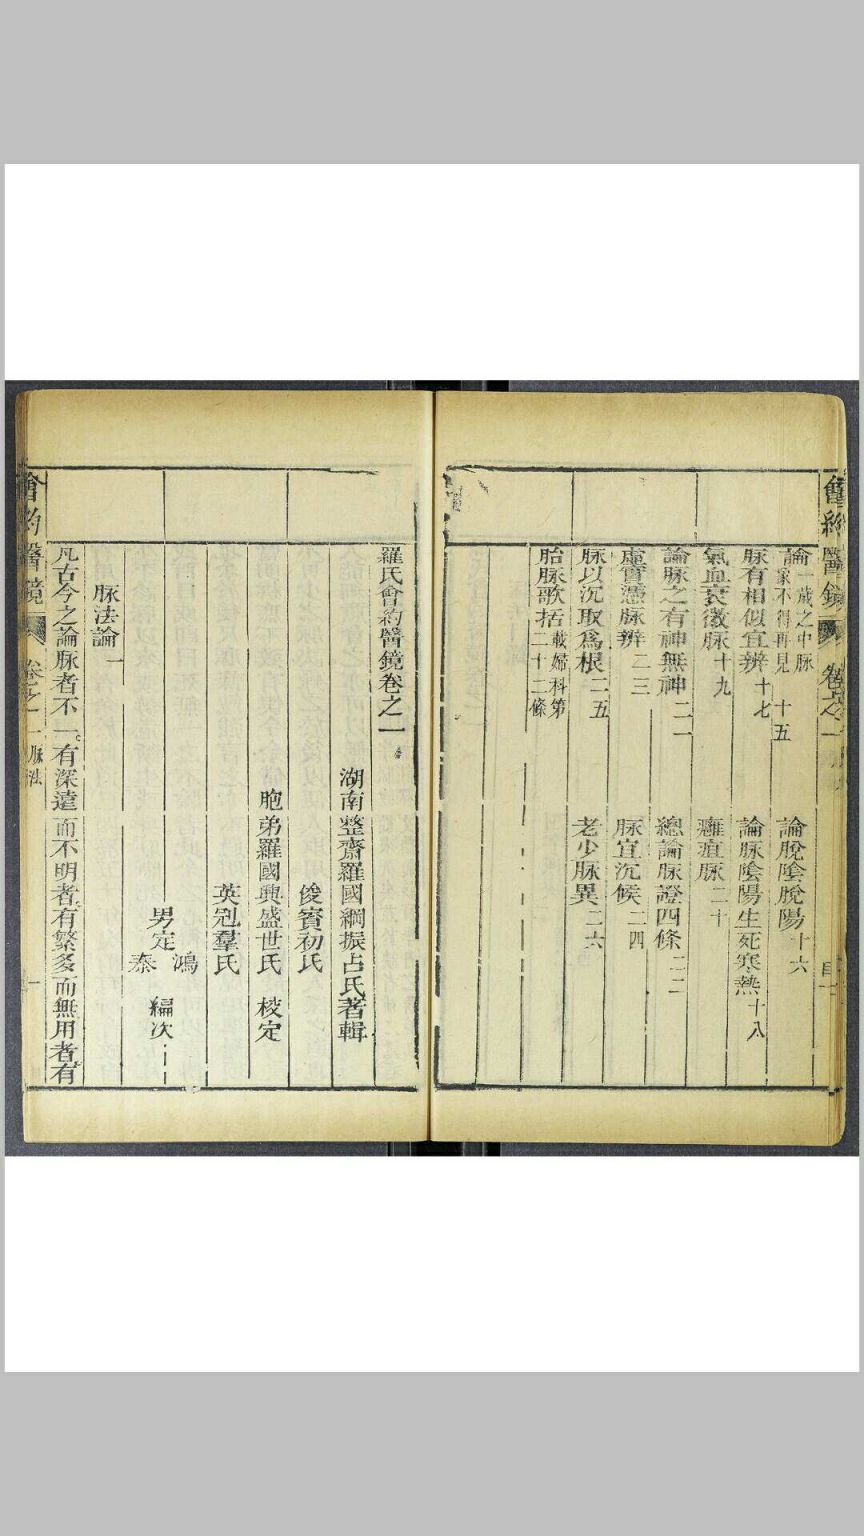 會約醫鏡 卷之一
論一歲之中脉家不得再見 十五 論脫陰脫陽十六
脉有相似宜辨十七 論脉陰陽生死寒熱十八
氣血衰微脉十九 癰疽脉二十
論脉之有神無神二一 總論脉證四條二二
虛實憑脉辨二三 脉宜沉候二四
脉以沉取爲根二五 老少脉異二六
胎脉歌括載婦科第二十二條
羅氏會約醫鏡卷之一
湖南整齋羅國綱振占氏著輯
俊賓初氏
胞弟羅國興盛世氏 校定
英冠羣氏
鴻
男定 編次
泰
脉法論一
凡古今之論脉者不一有深遠而不明者有繁多而無用者有
會約醫鏡 卷之一 脉法 一